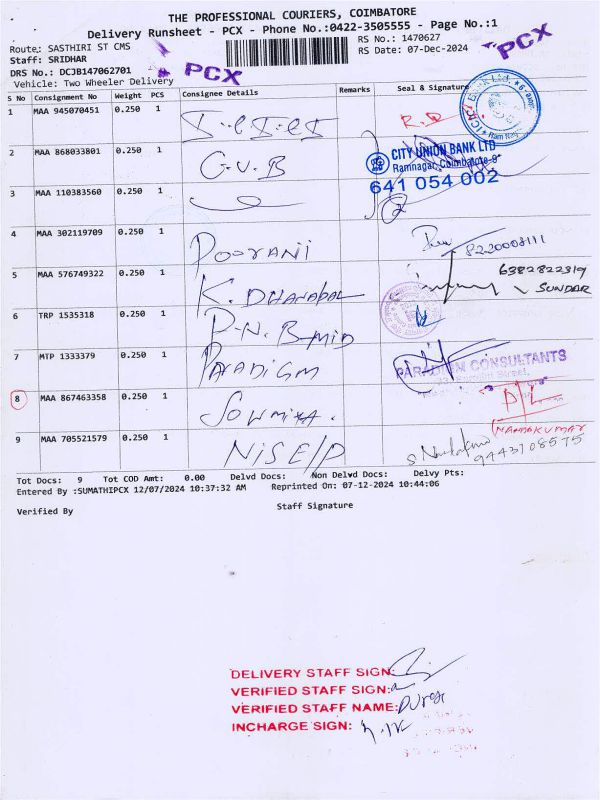 THE PROFESSIONAL COURIERS, COIMBATORE
Delivery Runsheet - PCX - Phone No.:0422-3505555 - Page No.:1
Route: SASTHIRI ST CMS
RS No.: 1470627
Staff: SRIDHAR
RS Date: 07-Dec-2024
PCX
DRS No.: DCJB147062701
PCX
Vehicle: Two Wheeler Delivery
S No Consignment No Weight PCS Consignee Details Remarks Seal & Signature
1 MAA 945070451 0.250 1
2 MAA 868033801 0.250 1 C.U.B
CITY UNION BANK LTD
Ramnagar, Coimbatore-9
641 054 002
3 MAA 110383560 0.250 1
4 MAA 302119709 0.250 1 POORANI 8220008111
5 MAA 576749322 0.250 1 K. DHANABAL 6382822319
SUNDAR
6 TRP 1535318 0.250 1
7 MTP 1333379 0.250 1 PARADIGM
PARADIGM CONSULTANTS
8 MAA 867463358 0.250 1 SOWMIYA. D/L
9 MAA 705521579 0.250 1 NISE/P
9443708575
Tot Docs: 9 Tot COD Amt: 0.00 Delvd Docs: Non Delvd Docs: Delvy Pts:
Entered By :SUMATHIPCX 12/07/2024 10:37:32 AM Reprinted On: 07-12-2024 10:44:06
Verified By
Staff Signature
DELIVERY STAFF SIGN:
VERIFIED STAFF SIGN:
VERIFIED STAFF NAME:
INCHARGE SIGN: